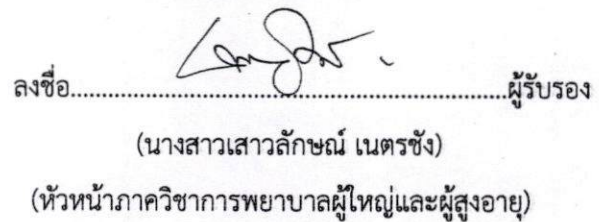 ลงชื่อ................................................................ผู้รับรอง
(นางสาวเสาวลักษณ์ เนตรชัง)
(หัวหน้าภาควิชาการพยาบาลผู้ใหญ่และผู้สูงอายุ)